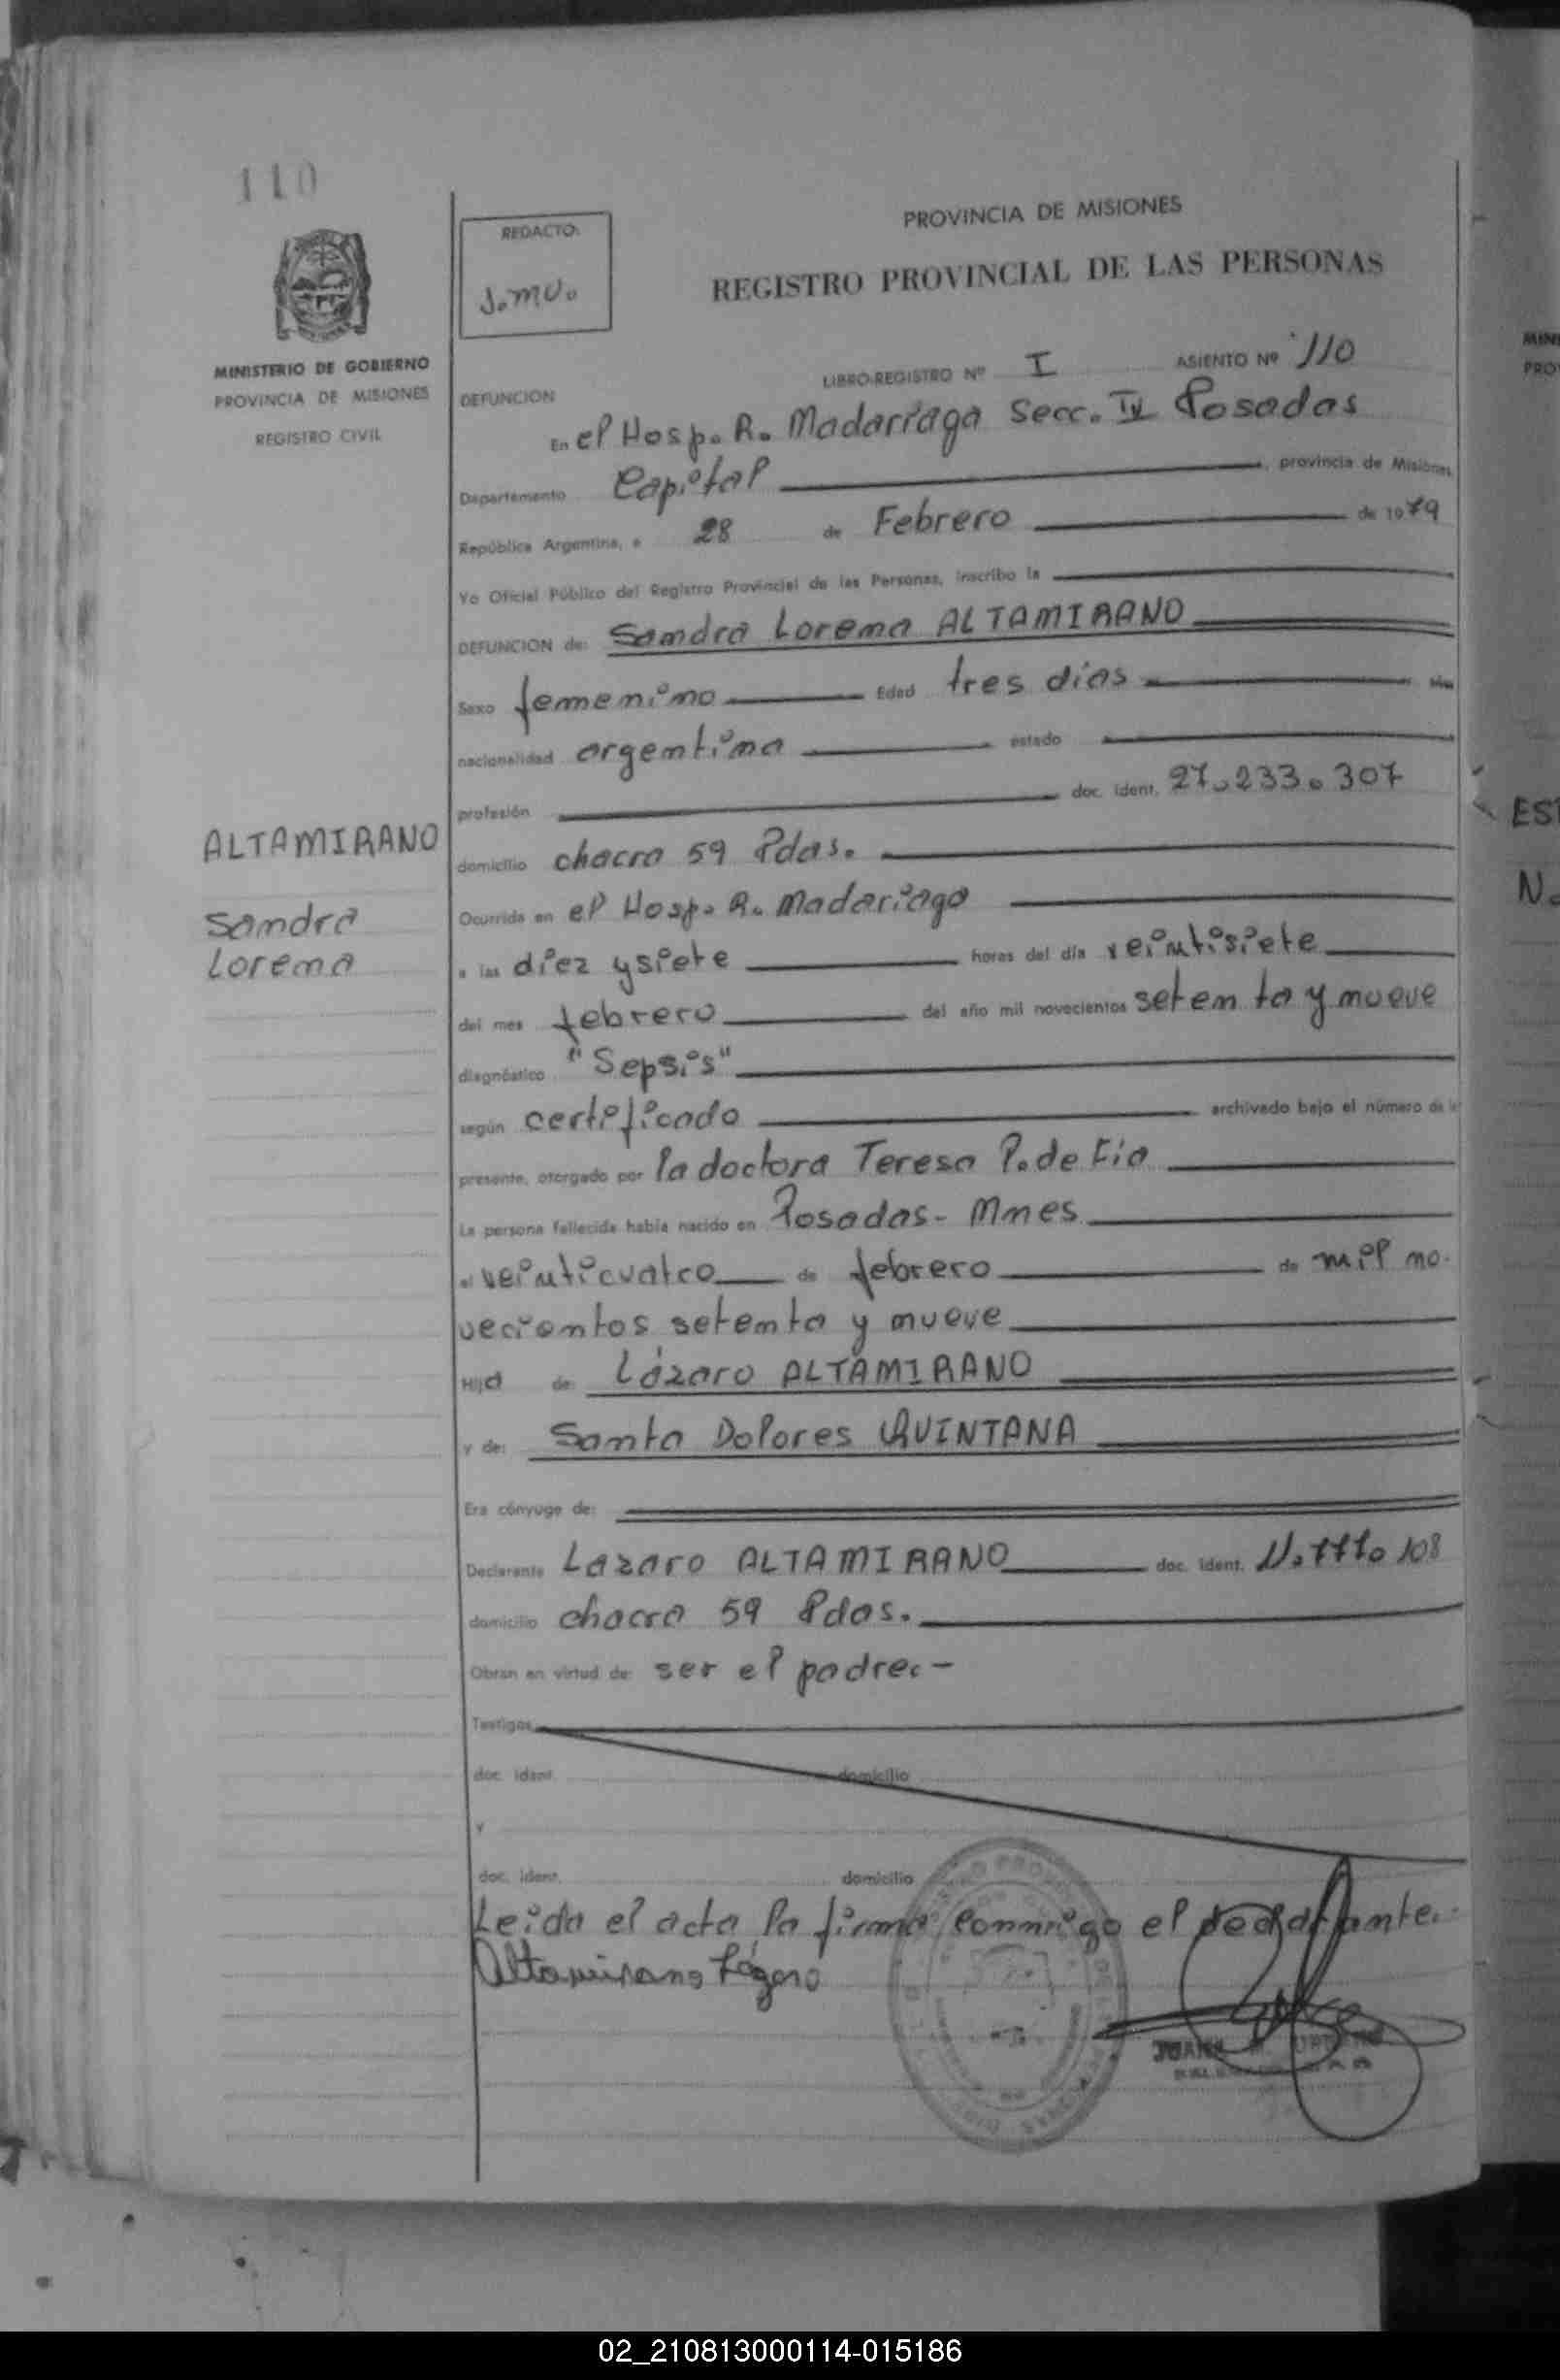 110
MINISTERIO DE GOBIERNO
PROVINCIA DE MISIONES
REGISTRO CIVIL
ALTAMIRANO
Sandra
Lorena
REDACTO:
J.M.U.
PROVINCIA DE MISIONES
REGISTRO PROVINCIAL DE LAS PERSONAS
LIBRO-REGISTRO Nº I ASIENTO Nº 110
DEFUNCION
En el Hosp. R. Madariaga Secc. IV Posadas
Departamento Capital, provincia de Misiones
República Argentina, a 28 de Febrero de 1979
Yo Oficial Público del Registro Provincial de las Personas, inscribo la
DEFUNCION de: Sandra Lorena ALTAMIRANO
Sexo femenino Edad tres días
nacionalidad argentina estado
profesión doc. ident. 27.233.307
domicilio chacra 59 Pdas.
Ocurrida en el Hosp. R. Madariaga
a las diez y siete horas del día veintisiete
del mes febrero del año mil novecientos setenta y nueve
diagnóstico "Sepsis"
según certificado archivado bajo el número de la
presente, otorgado por la doctora Teresa P. de
La persona fallecida había nacido en Posadas - Mnes
el veinticuatro de febrero de mil no-
vecientos setenta y nueve
Hija de: Lázaro ALTAMIRANO
y de: Santa Dolores QUINTANA
Era cónyuge de:
Declarante Lazaro ALTAMIRANO doc. ident.
domicilio chacra 59 Pdas.
Obran en virtud de: ser el padre.-
Testigos
doc. ident. domicilio
y
doc. ident. domicilio
Leida el acta la firma conmigo el declarante.-
Altamirano Lázaro
02_210813000114-015186